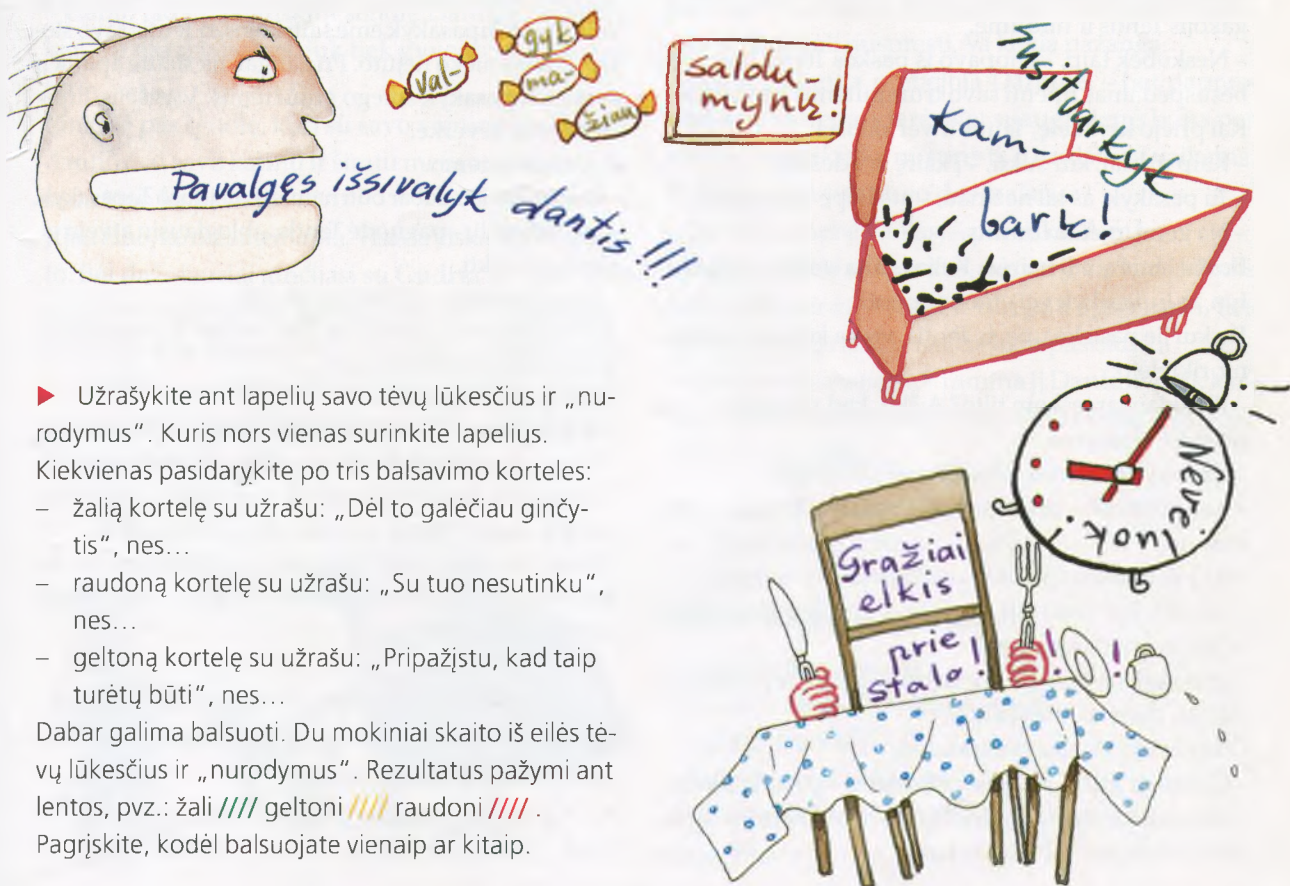 Pavalgęs išsivalyk dantis!!!
Val-
gyk
ma-
žiau
saldu-
mynų!
Susitvarkyk
kam-
barį!
Nevėluok!
Gražiai
elkis
prie
stalo!!!
▶ Užrašykite ant lapelių savo tėvų lūkesčius ir „nu-
rodymus“. Kuris nors vienas surinkite lapelius.
Kiekvienas pasidarykite po tris balsavimo korteles:
– žalią kortelę su užrašu: „Dėl to galėčiau ginčy-
tis“, nes...
– raudoną kortelę su užrašu: „Su tuo nesutinku“,
nes...
– geltoną kortelę su užrašu: „Pripažįstu, kad taip
turėtų būti“, nes...
Dabar galima balsuoti. Du mokiniai skaito iš eilės tė-
vų lūkesčius ir „nurodymus“. Rezultatus pažymi ant
lentos, pvz.: žali //// geltoni //// raudoni //// .
Pagrįskite, kodėl balsuojate vienaip ar kitaip.